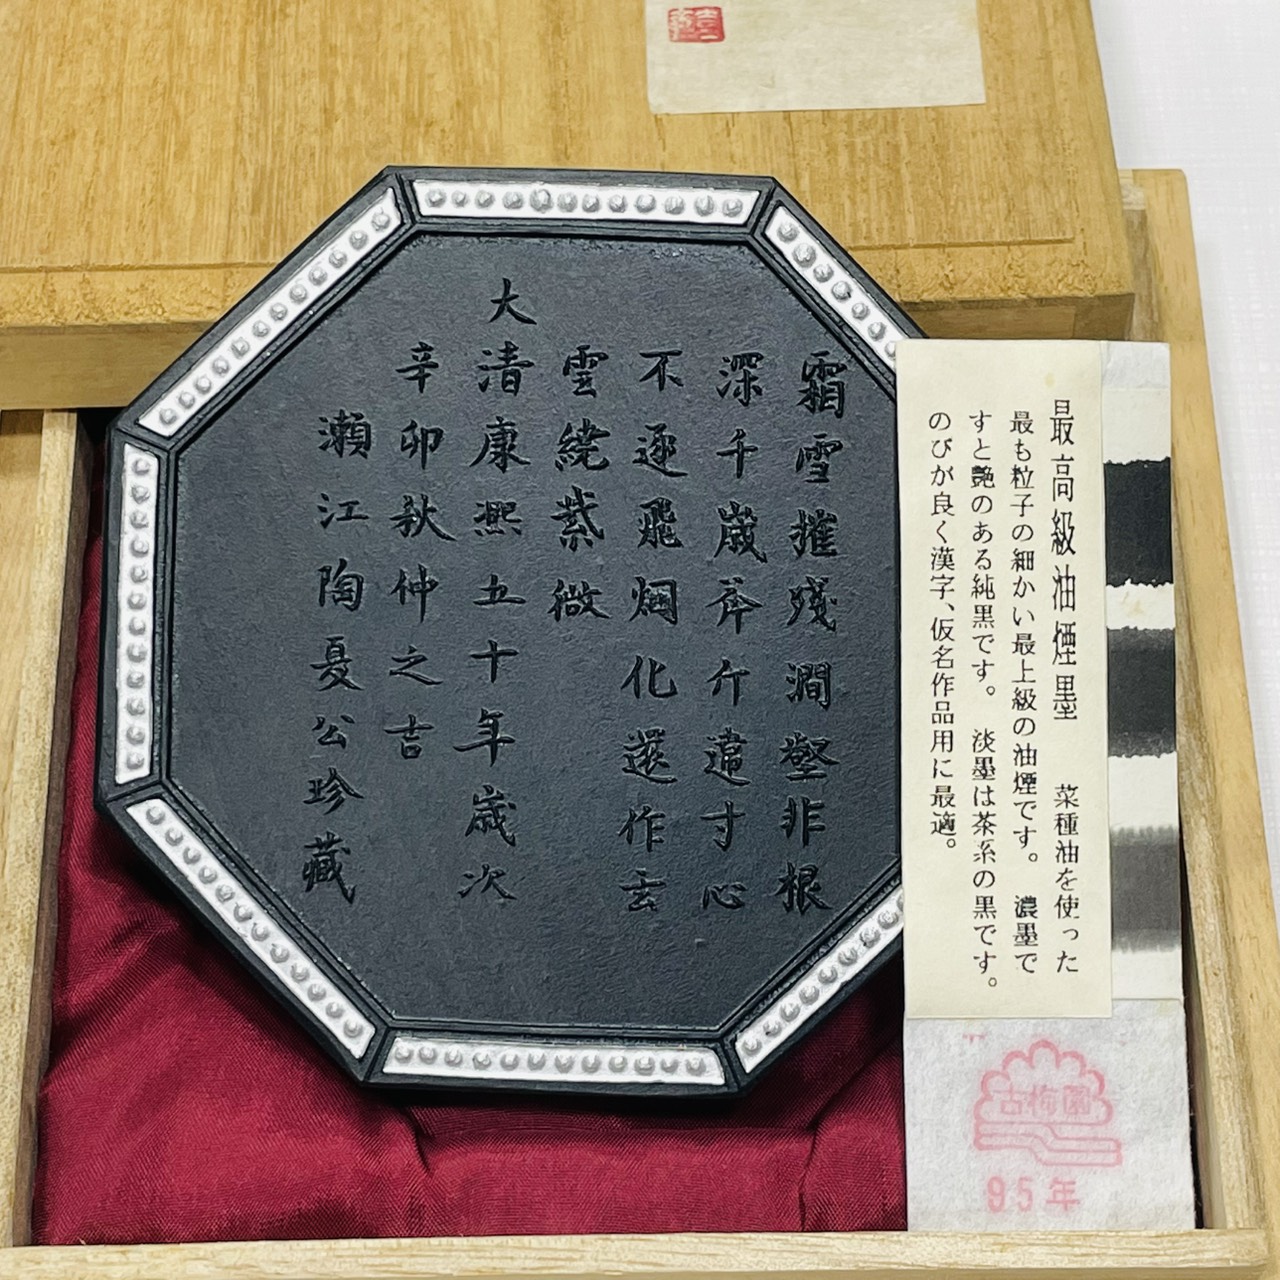 霜雪摧殘澗壑非根
深千歲斧斤違寸心
不逐飛烟化還作玄
雲繞紫微
大清康熙五十年歲次
辛卯秋仲之吉
瀨江陶公珍藏
最高級油煙墨　菜種油を使った
最も粒子の細かい最上級の油煙です。濃墨で
すと艶のある純黒です。淡墨は茶系の黒です。
のびが良く漢字、仮名作品用に最適。
古梅園
95年